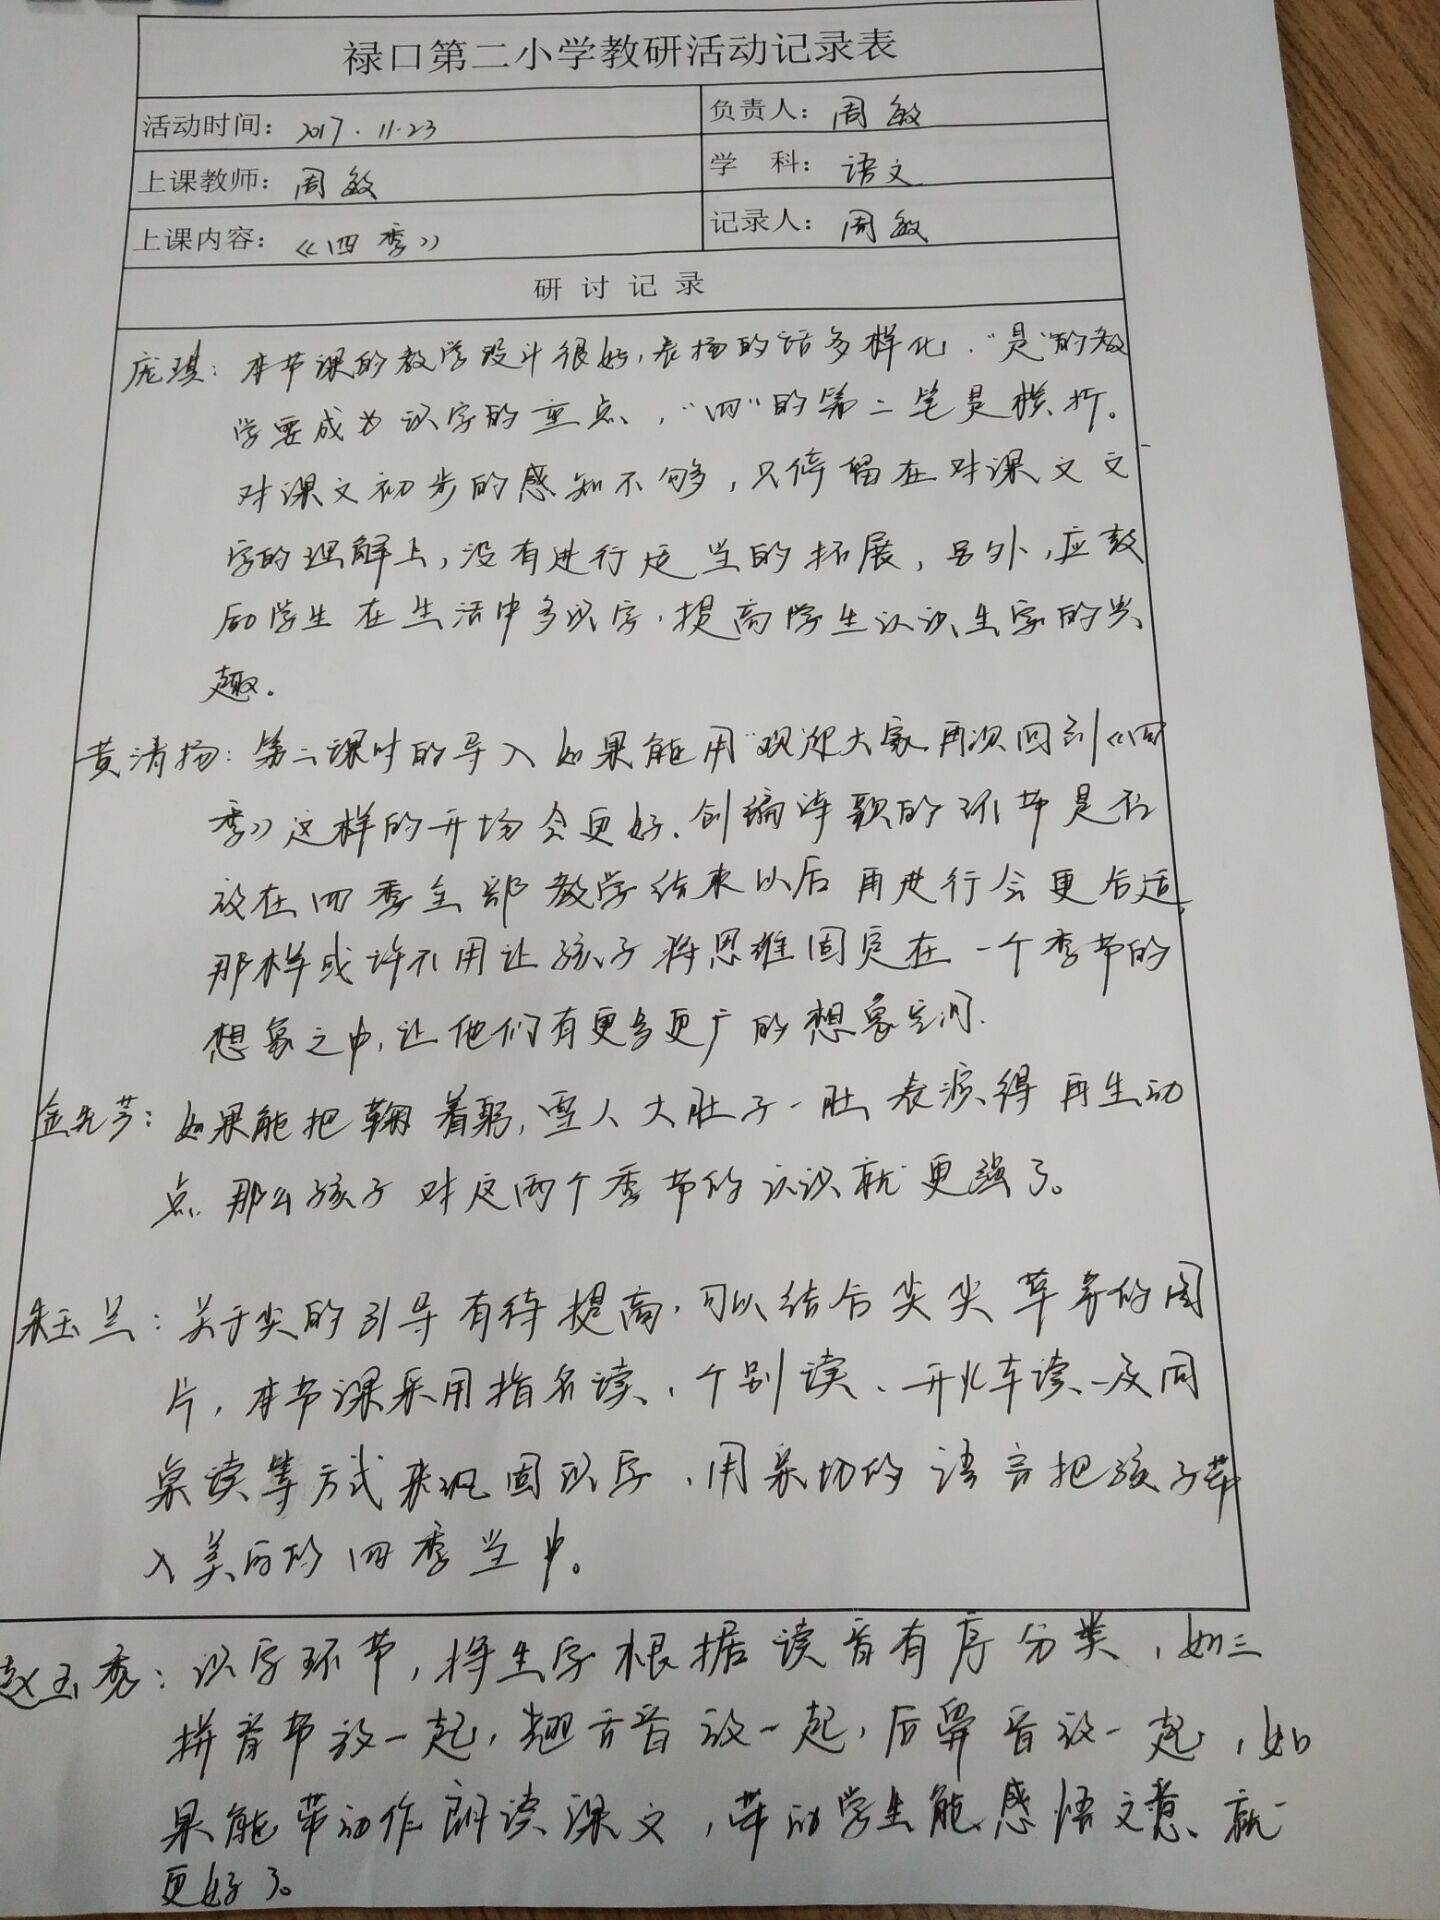 禄口第二小学教研活动记录表
活动时间：2017.11.23
负责人：周敏
上课教师：周敏
学 科：语文
上课内容：《四季》
记录人：周敏
研讨记录
庞琪：本节课的教学设计很好，表扬的话多样化．“是”的教
学要成为识字的重点，“四”的第二笔是横折。
对课文初步的感知不够，只停留在对课文文
字的理解上，没有进行适当的拓展，另外，应鼓
励学生在生活中多识字，提高学生认识生字的兴
趣。
黄清扬：第二课时的导入如果能用“欢迎大家再次回到《四
季》这样的开场会更好．创编诗歌的环节是否
放在四季全部教学结束以后再进行会更合适，
那样或许不用让孩子将思维固定在一个季节的
想象之中，让他们有更多更广的想象空间．
金先芬：如果能把鞠着躬，雪人大肚子一肚表演得再生动
点 那么孩子对这两个季节的认识就更强了。
朱玉兰：关于尖的引导有待提高，可以结合尖尖草芽的图
片，本节课采用指名读、个别读、开火车读、及同
桌读等方式来巩固识字，用亲切的语言把孩子带
入美丽的四季当中。
赵玉秀：识字环节，将生字根据读音有序分类，如三
拼音节放一起，翘舌音放一起，后鼻音放一起，如
果能带动作朗读课文，带动学生能感悟文意、就
更好了。